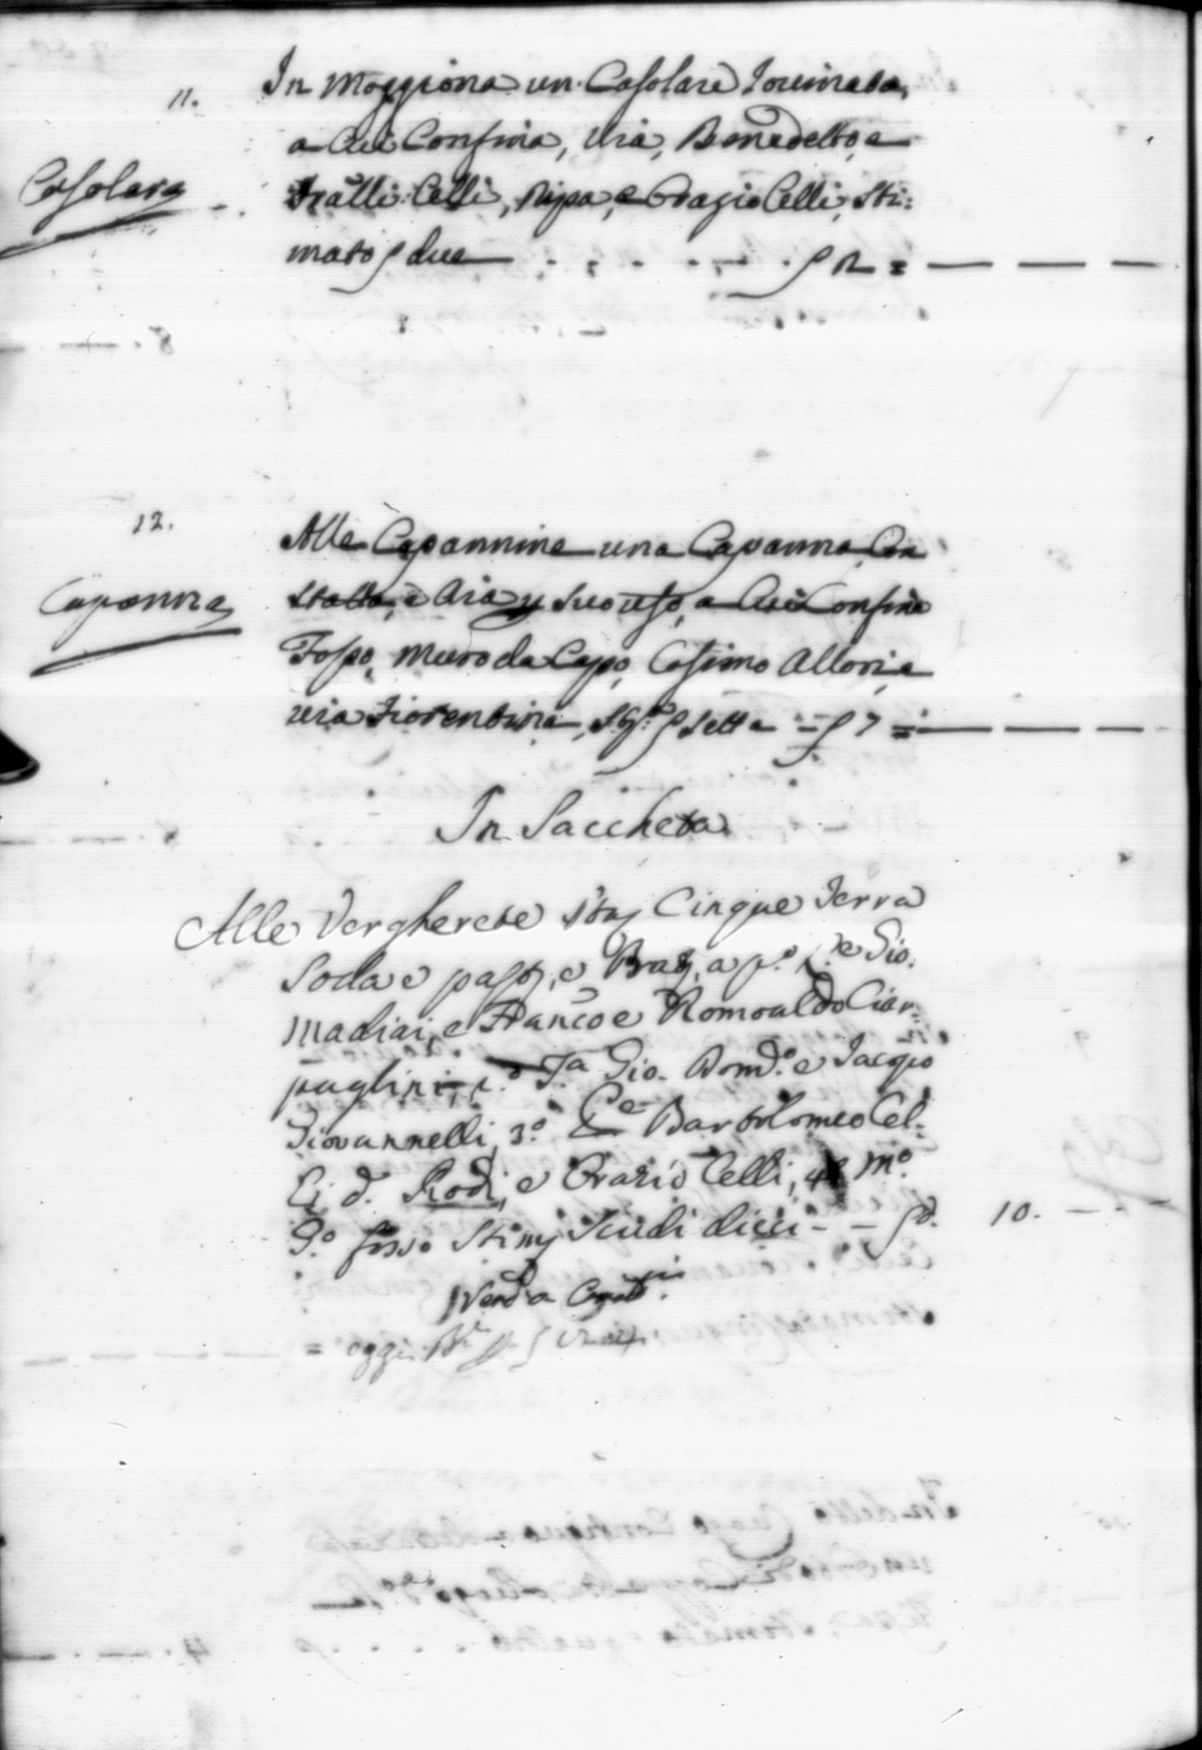 11.
In Moggiona un Casolare rouinato,
a Cui Confina, Via, Benedetto, e
Casolare
Fratlli Celli, Ripa, e Orazio Celli, Sti:
mato due
12.
Alle Capannine una Capanna Con
Capanna
Stalla, e Aia p suo uso, a Cui Confina
Fosso, Muro da Capo, Cosimo Allori, e
via Fiorentina, sette 7 =
In Saccheta
Alle Vergherete Stai Cinque Terra
Soda e e Gio.
Madiai, e Franco e Romoaldo Ciar-
paglini, Gio. Dom.º e Jacopo
Giovannelli, 3.º Bartolomeo Cel-
li d. Rodi, e Orazio Celli, 4 M.º
5.º fosso Stim Scudi dieci - - 10. -
= oggi